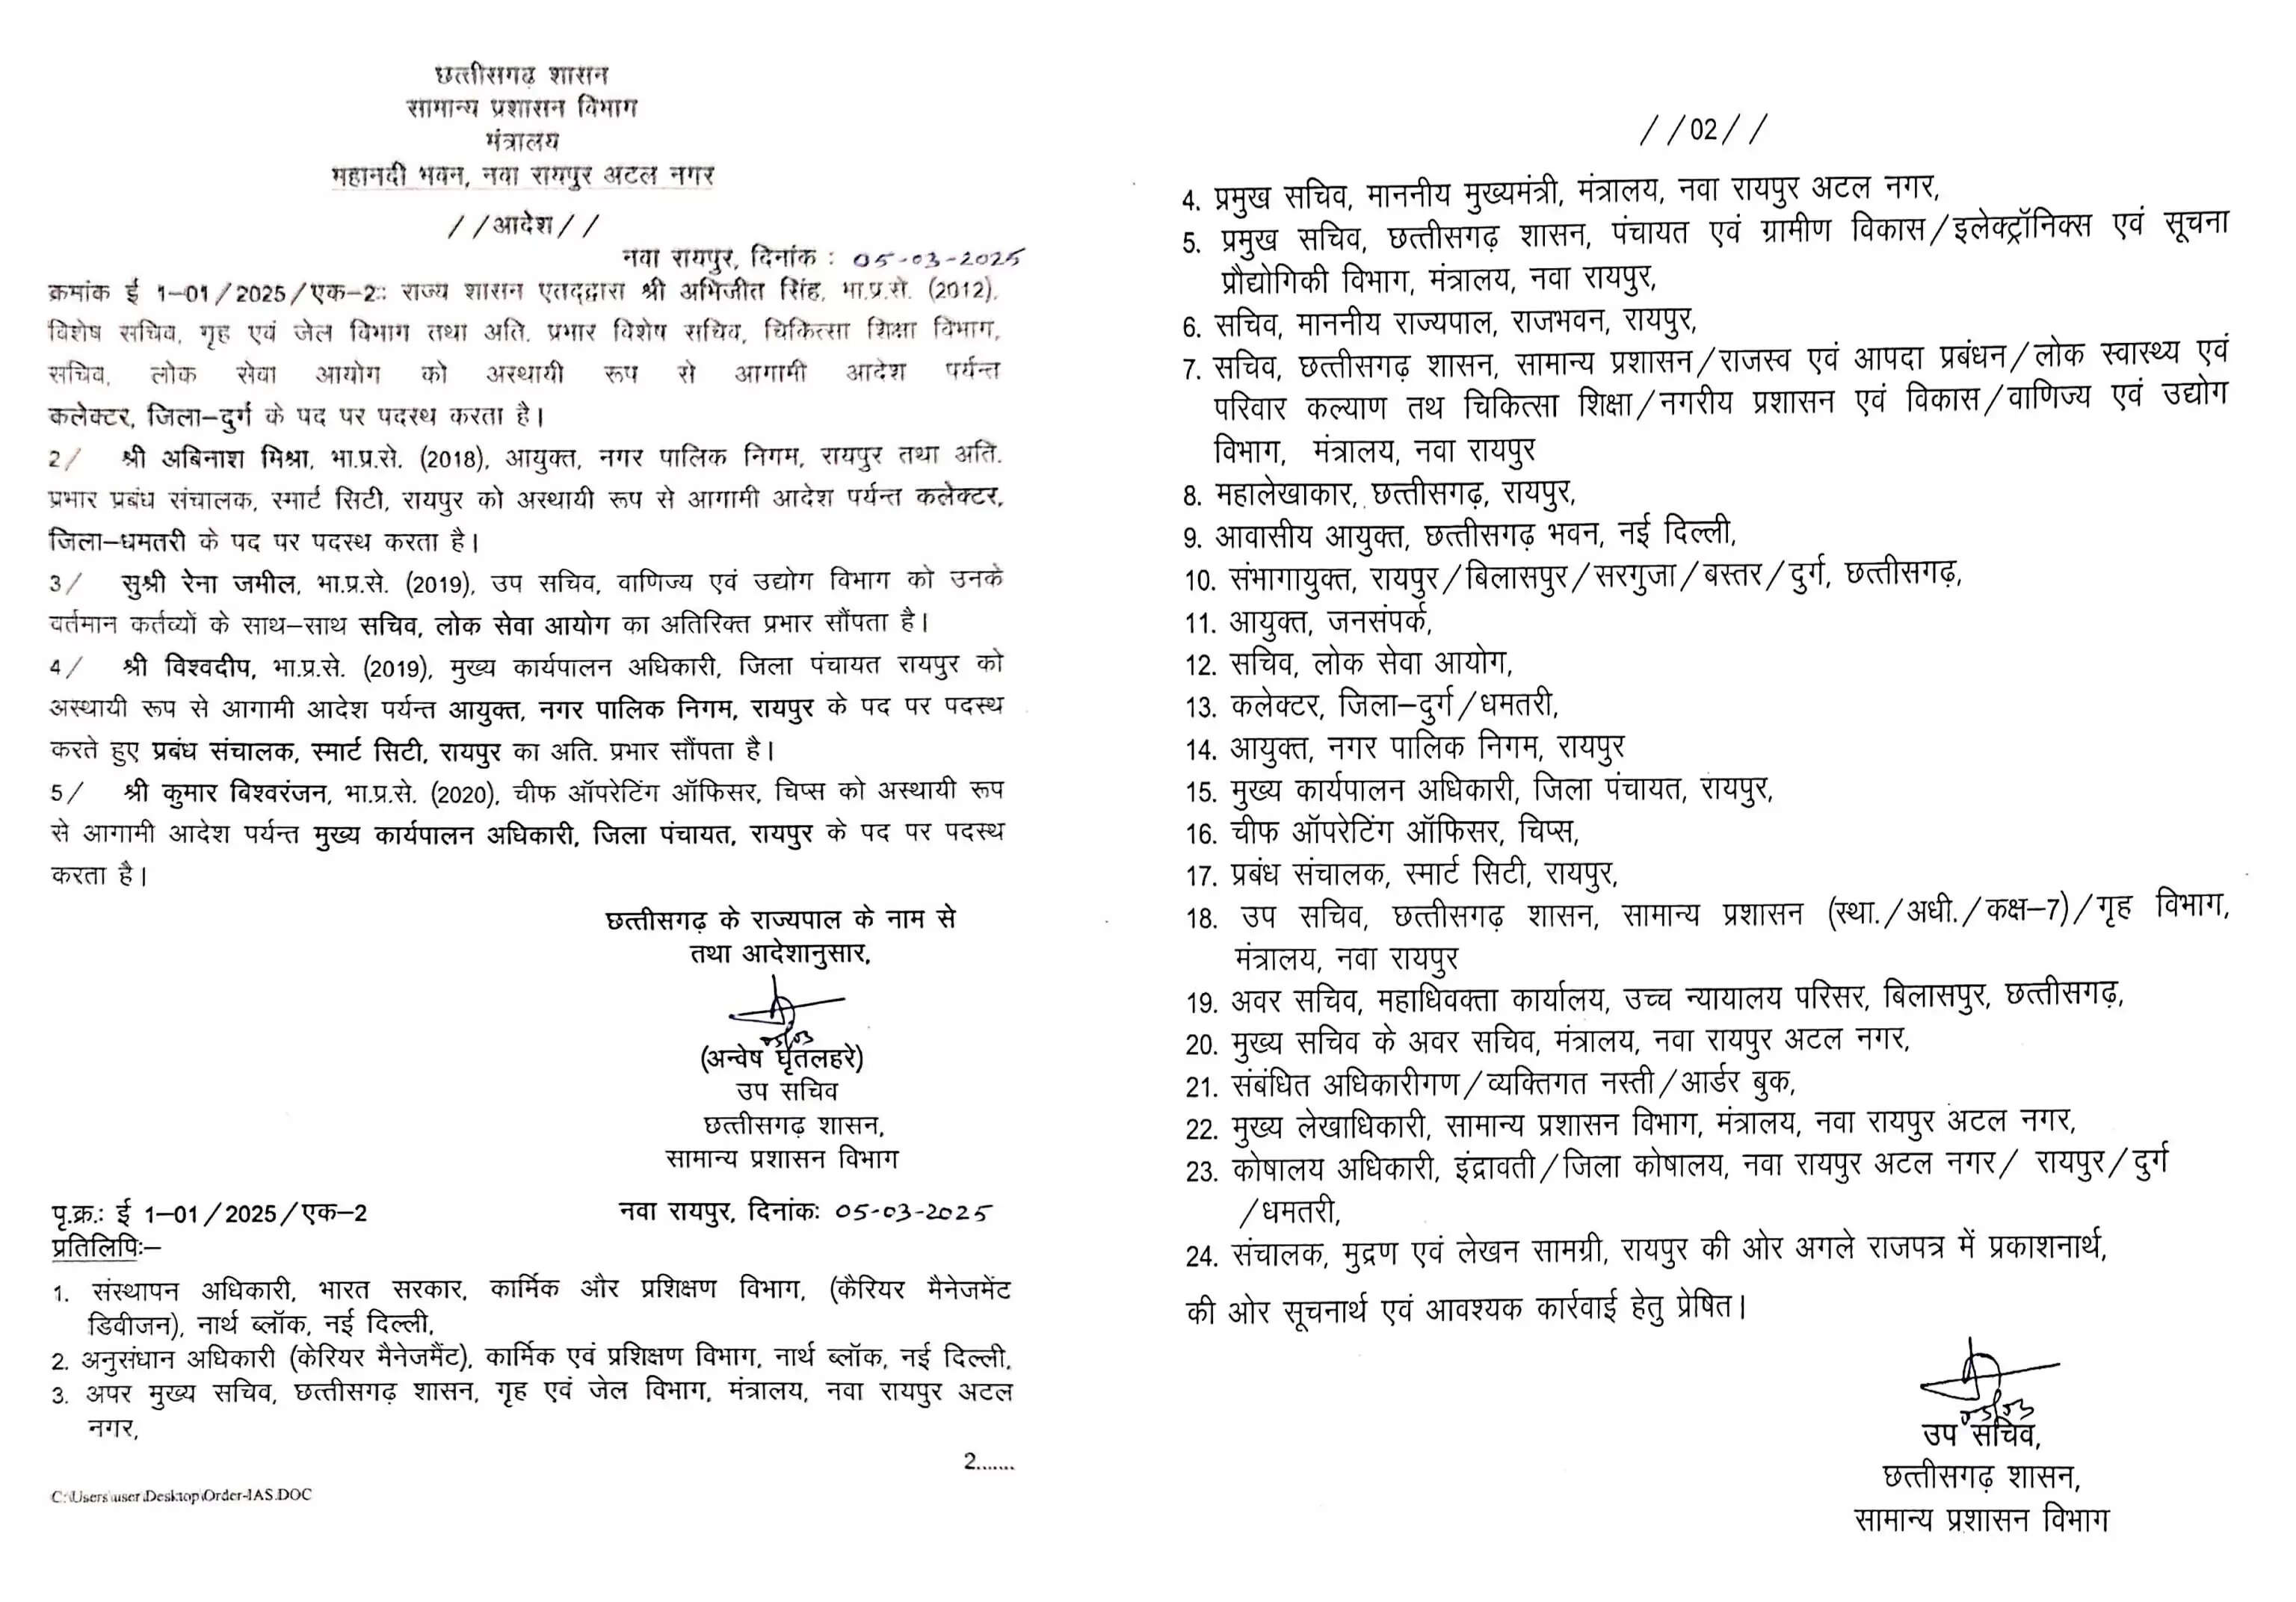 छत्तीसगढ़ शासन
सामान्य प्रशासन विभाग
मंत्रालय
महानदी भवन, नवा रायपुर अटल नगर
//आदेश//
नवा रायपुर, दिनांक : 05-03-2025
क्रमांक ई 1–01/2025/एक–2:: राज्य शासन एतद्द्वारा श्री अभिजीत सिंह, भा.प्र.से. (2012),
विशेष सचिव, गृह एवं जेल विभाग तथा अति. प्रभार विशेष सचिव, चिकित्सा शिक्षा विभाग,
सचिव, लोक सेवा आयोग को अस्थायी रूप से आगामी आदेश पर्यन्त
कलेक्टर, जिला–दुर्ग के पद पर पदस्थ करता है।
2/ श्री अबिनाश मिश्रा, भा.प्र.से. (2018), आयुक्त, नगर पालिक निगम, रायपुर तथा अति.
प्रभार प्रबंध संचालक, स्मार्ट सिटी, रायपुर को अस्थायी रूप से आगामी आदेश पर्यन्त कलेक्टर,
जिला–धमतरी के पद पर पदस्थ करता है।
3/ सुश्री रेना जमील, भा.प्र.से. (2019), उप सचिव, वाणिज्य एवं उद्योग विभाग को उनके
वर्तमान कर्तव्यों के साथ–साथ सचिव, लोक सेवा आयोग का अतिरिक्त प्रभार सौंपता है।
4/ श्री विश्वदीप, भा.प्र.से. (2019), मुख्य कार्यपालन अधिकारी, जिला पंचायत रायपुर को
अस्थायी रूप से आगामी आदेश पर्यन्त आयुक्त, नगर पालिक निगम, रायपुर के पद पर पदस्थ
करते हुए प्रबंध संचालक, स्मार्ट सिटी, रायपुर का अति. प्रभार सौंपता है।
5/ श्री कुमार बिश्वरंजन, भा.प्र.से. (2020), चीफ ऑपरेटिंग ऑफिसर, चिप्स को अस्थायी रूप
से आगामी आदेश पर्यन्त मुख्य कार्यपालन अधिकारी, जिला पंचायत, रायपुर के पद पर पदस्थ
करता है।
छत्तीसगढ़ के राज्यपाल के नाम से
तथा आदेशानुसार,
05/03
(अन्वेष घृतलहरे)
उप सचिव
छत्तीसगढ़ शासन,
सामान्य प्रशासन विभाग
पृ.क्र.: ई 1–01/2025/एक–2 नवा रायपुर, दिनांकः 05-03-2025
प्रतिलिपिः–
1. संस्थापन अधिकारी, भारत सरकार, कार्मिक और प्रशिक्षण विभाग, (कैरियर मैनेजमेंट
डिवीजन), नार्थ ब्लॉक, नई दिल्ली,
2. अनुसंधान अधिकारी (केरियर मैनेजमैंट), कार्मिक एवं प्रशिक्षण विभाग, नार्थ ब्लॉक, नई दिल्ली,
3. अपर मुख्य सचिव, छत्तीसगढ़ शासन, गृह एवं जेल विभाग, मंत्रालय, नवा रायपुर अटल
नगर,
2.......
C:\Users\user\Desktop\Order-IAS.DOC
//02//
4. प्रमुख सचिव, माननीय मुख्यमंत्री, मंत्रालय, नवा रायपुर अटल नगर,
5. प्रमुख सचिव, छत्तीसगढ़ शासन, पंचायत एवं ग्रामीण विकास/इलेक्ट्रॉनिक्स एवं सूचना
प्रौद्योगिकी विभाग, मंत्रालय, नवा रायपुर,
6. सचिव, माननीय राज्यपाल, राजभवन, रायपुर,
7. सचिव, छत्तीसगढ़ शासन, सामान्य प्रशासन/राजस्व एवं आपदा प्रबंधन/लोक स्वास्थ्य एवं
परिवार कल्याण तथ चिकित्सा शिक्षा/नगरीय प्रशासन एवं विकास/वाणिज्य एवं उद्योग
विभाग, मंत्रालय, नवा रायपुर
8. महालेखाकार, छत्तीसगढ़, रायपुर,
9. आवासीय आयुक्त, छत्तीसगढ़ भवन, नई दिल्ली,
10. संभागायुक्त, रायपुर/बिलासपुर/सरगुजा/बस्तर/दुर्ग, छत्तीसगढ़,
11. आयुक्त, जनसंपर्क,
12. सचिव, लोक सेवा आयोग,
13. कलेक्टर, जिला–दुर्ग/धमतरी,
14. आयुक्त, नगर पालिक निगम, रायपुर
15. मुख्य कार्यपालन अधिकारी, जिला पंचायत, रायपुर,
16. चीफ ऑपरेटिंग ऑफिसर, चिप्स,
17. प्रबंध संचालक, स्मार्ट सिटी, रायपुर,
18. उप सचिव, छत्तीसगढ़ शासन, सामान्य प्रशासन (स्था./अधी./कक्ष–7)/गृह विभाग,
मंत्रालय, नवा रायपुर
19. अवर सचिव, महाधिवक्ता कार्यालय, उच्च न्यायालय परिसर, बिलासपुर, छत्तीसगढ़,
20. मुख्य सचिव के अवर सचिव, मंत्रालय, नवा रायपुर अटल नगर,
21. संबंधित अधिकारीगण/व्यक्तिगत नस्ती/आर्डर बुक,
22. मुख्य लेखाधिकारी, सामान्य प्रशासन विभाग, मंत्रालय, नवा रायपुर अटल नगर,
23. कोषालय अधिकारी, इंद्रावती/जिला कोषालय, नवा रायपुर अटल नगर/ रायपुर/दुर्ग
/धमतरी,
24. संचालक, मुद्रण एवं लेखन सामग्री, रायपुर की ओर अगले राजपत्र में प्रकाशनार्थ,
की ओर सूचनार्थ एवं आवश्यक कार्रवाई हेतु प्रेषित।
05/03
उप सचिव,
छत्तीसगढ़ शासन,
सामान्य प्रशासन विभाग